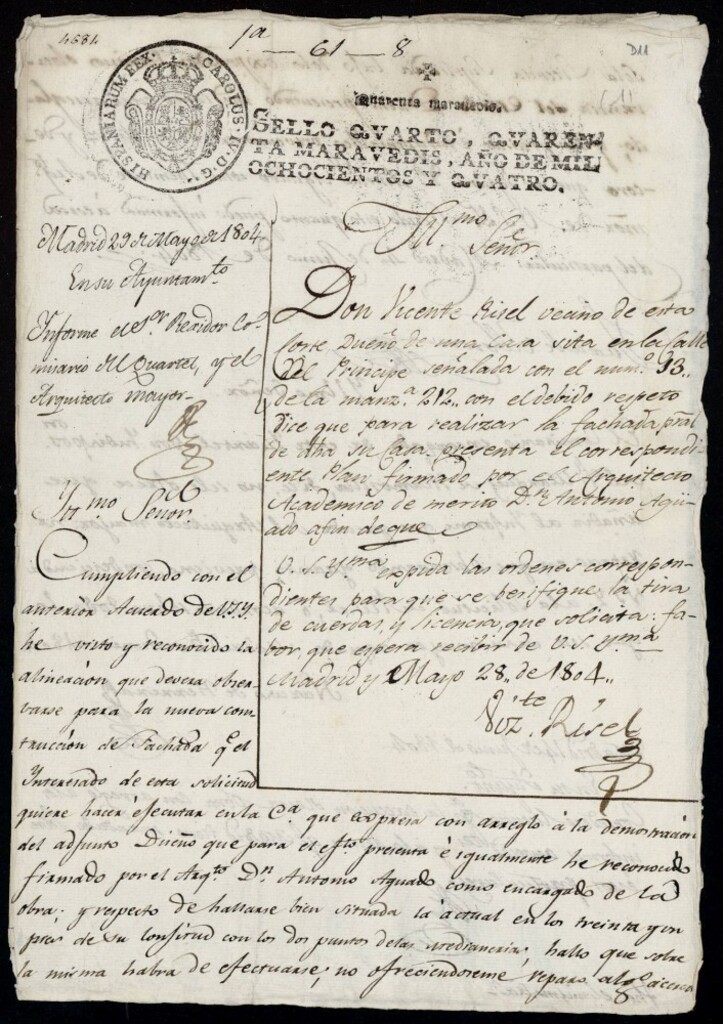 4684
1ª — 61 — 8
D11
HISPANIARUM REX. CAROLUS. IV. D. G.
Quarenta maravedis.
SELLO QVARTO, QVAREN-
TA MARAVEDIS, AÑO DE MIL
OCHOCIENTOS Y QVATRO.
Yll.mo Señor.
Don Vicente Risel vecino de esta
Corte Dueño de una Casa sita en la Calle
del Principe señalada con el num.º 13..
de la manz.ª 212.. con el debido respeto
dice que para realizar la fachada pral
de dha su Casa presenta el correspondi-
ente Plan firmado por el Arquitecto
Academico de merito D.n Antonio Agu-
ado afin de que
V. S. Yma. expida las ordenes correspon-
dientes para que se berifique la tira
de cuerdas, y licencia, que solicita: fa-
bor, que espera recibir de V. S. Yma.
Madrid y Mayo 28,, de 1804,,
Vizte. Risel
Madrid 29 de Mayo de 1804
En su Ayuntam.to
Informe el S.or Rexidor Co-
misario del Quartel, y el
Arquitecto mayor-
Yll.mo Señor.
Cumpliendo con el
anterior Acuerdo de V.S.Y.
he visto y reconocido la
alineacion que devera obser-
varse para la nueva cons-
truccion de Fachada q.e el
Interesado de esta solicitud
quiere hacer ejecutar en la C.ª que expresa con arreglo á la demostración
del adjunto Diseño que para el efto. presenta é igualmente he reconocido
firmado por el Arq.to D.n Antonio Aguado como encargado de la
obra; y respecto de hallarse bien situada la actual en los treinta y un
pies de su lonsitud con los dos puntos de las medianerias, hallo que sobre
la misma habra de efectuarse; no ofreciendoseme reparo alg.º acerca